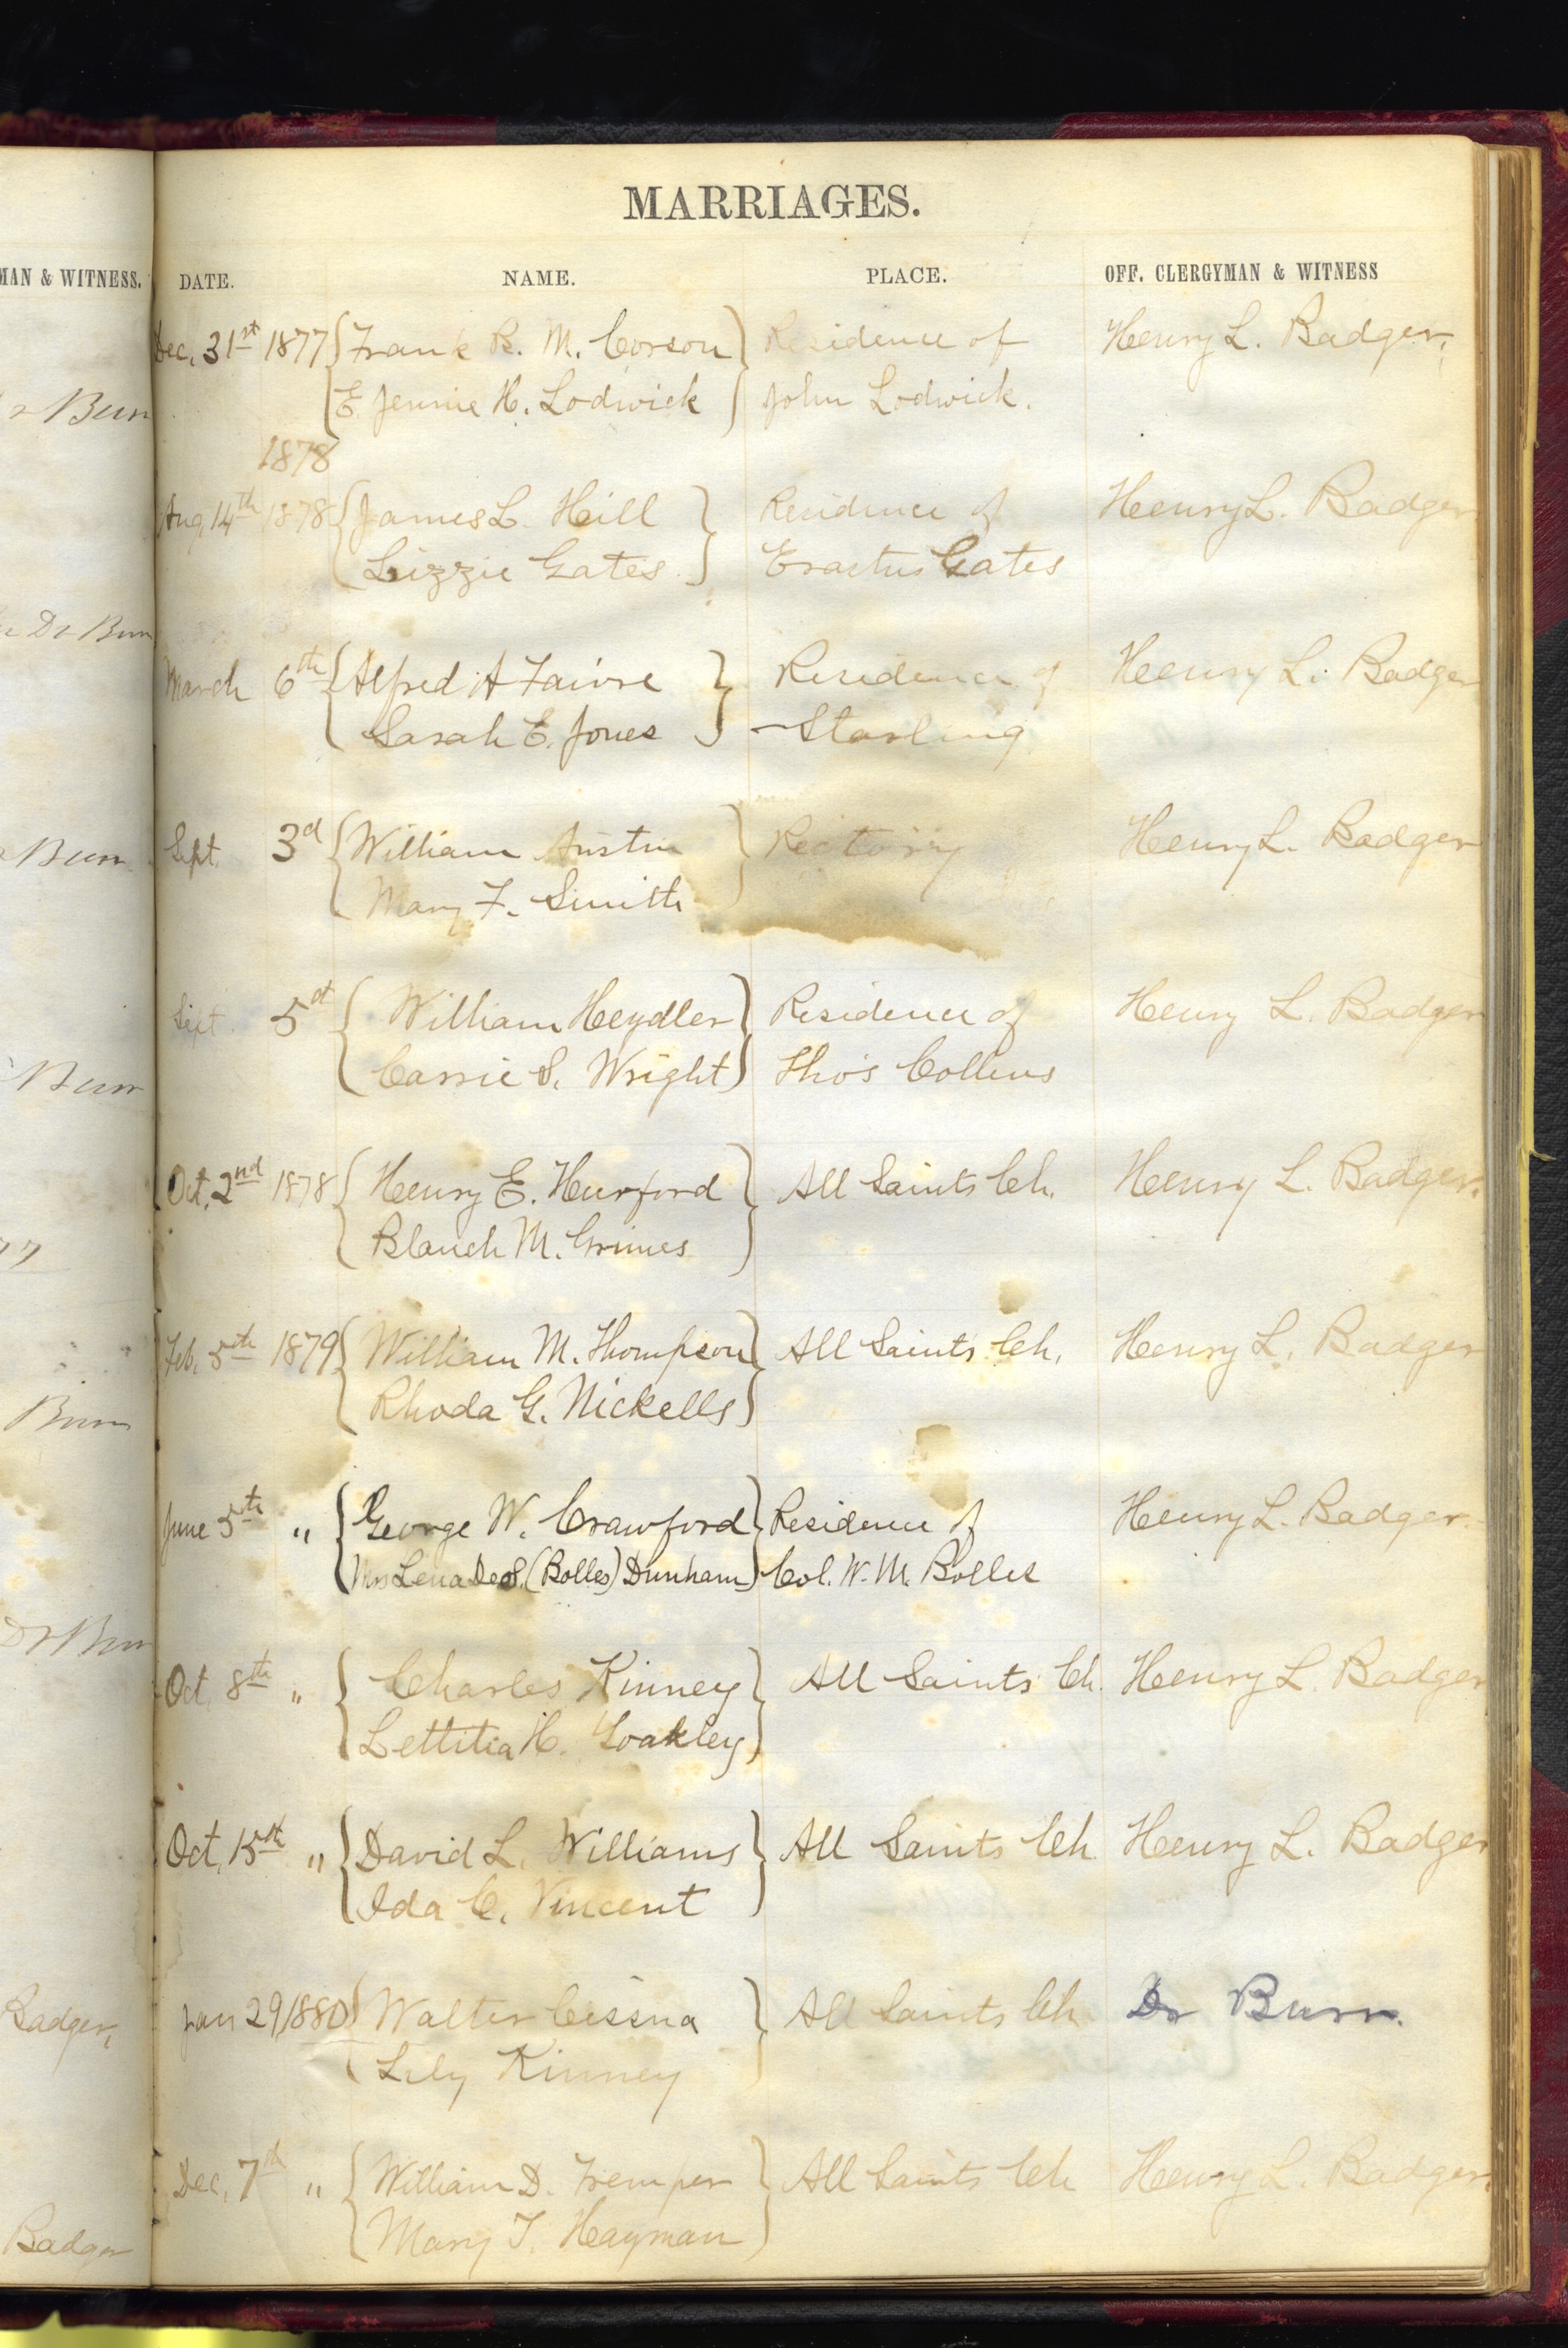 MARRIAGES.
MAN & WITNESS.
DATE. NAME. PLACE. OFF. CLERGYMAN & WITNESS
Dec, 31st 1877 Frank R. M. Corson Residence of Henry L. Badger.
E. Jennie H. Lodwick John Lodwick.
Burr
1878
Aug, 14th 1878 James L. Hill Residence of Henry L. Badger
Lizzie Gates. Erastus Gates
Dr Burr
March 6th Alfred A Faivre Residence of Henry L. Badger
Sarah E. Jones — Starling
Sept. 3d William Austin Rectory Henry L. Badger
Burr
Mary F. Smith
Sept 5th William Heydler Residence of Henry L. Badger
Carrie S. Wright Tho's Collins
Burr
Oct, 2nd 1878 Henry E. Hurford All Saints Ch. Henry L. Badger.
Blanch M. Grimes
Feb, 5th 1879 William M. Thompson All Saints Ch. Henry L. Badger
Rhoda G. Nickells
Burr
June 5th " George W. Crawford Residence of Henry L. Badger.
Mrs Lena DeS. (Bolles) Dunham Col. W. M. Bolles
Dr Burr
Oct, 8th " Charles Kinney All Saints Ch. Henry L. Badger
Lettitia H. Loakley
Oct, 15th " David L. Williams All Saints Ch Henry L. Badger
Ida C. Vincent
Badger,
Jan 29 1880 Walter Cissna All Saints Ch Dr Burr.
Lily Kinney
Dec, 7th " William D. Tremper All Saints Ch Henry L. Badger.
Mary T. Hayman
Badger